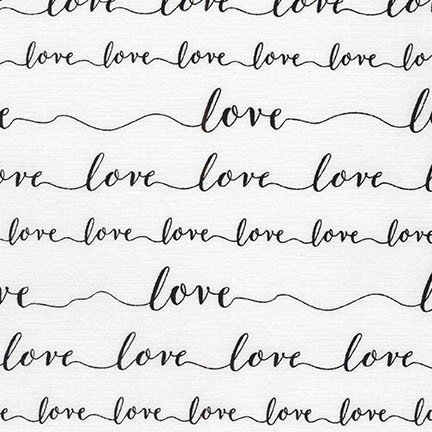 love love love love love
love love love love love lo
e love l
ove love love love
love love love love love love
ve love l
love love love love
e love love love love love lo